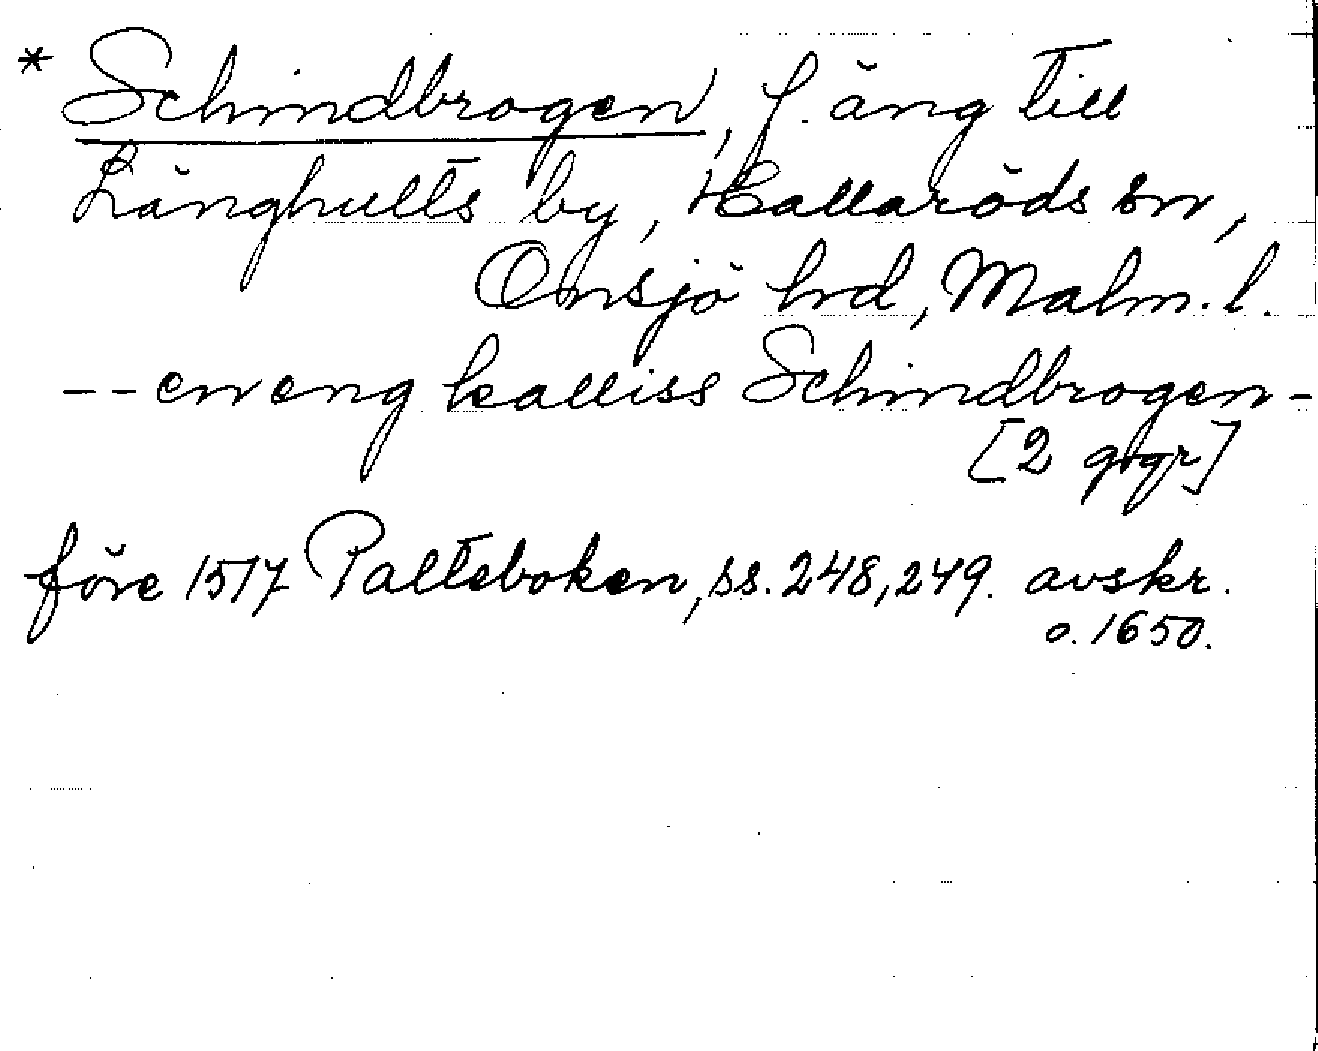 * Schindbrogen, f. äng till
Långhults by, Hallaröds sn,
Onsjö hrd, Malm. l.
-- en eng kalliss Schindbrogen -
[2 ggr]
före 1517 Palteboken, ss. 248, 249. avskr.
o. 1650.